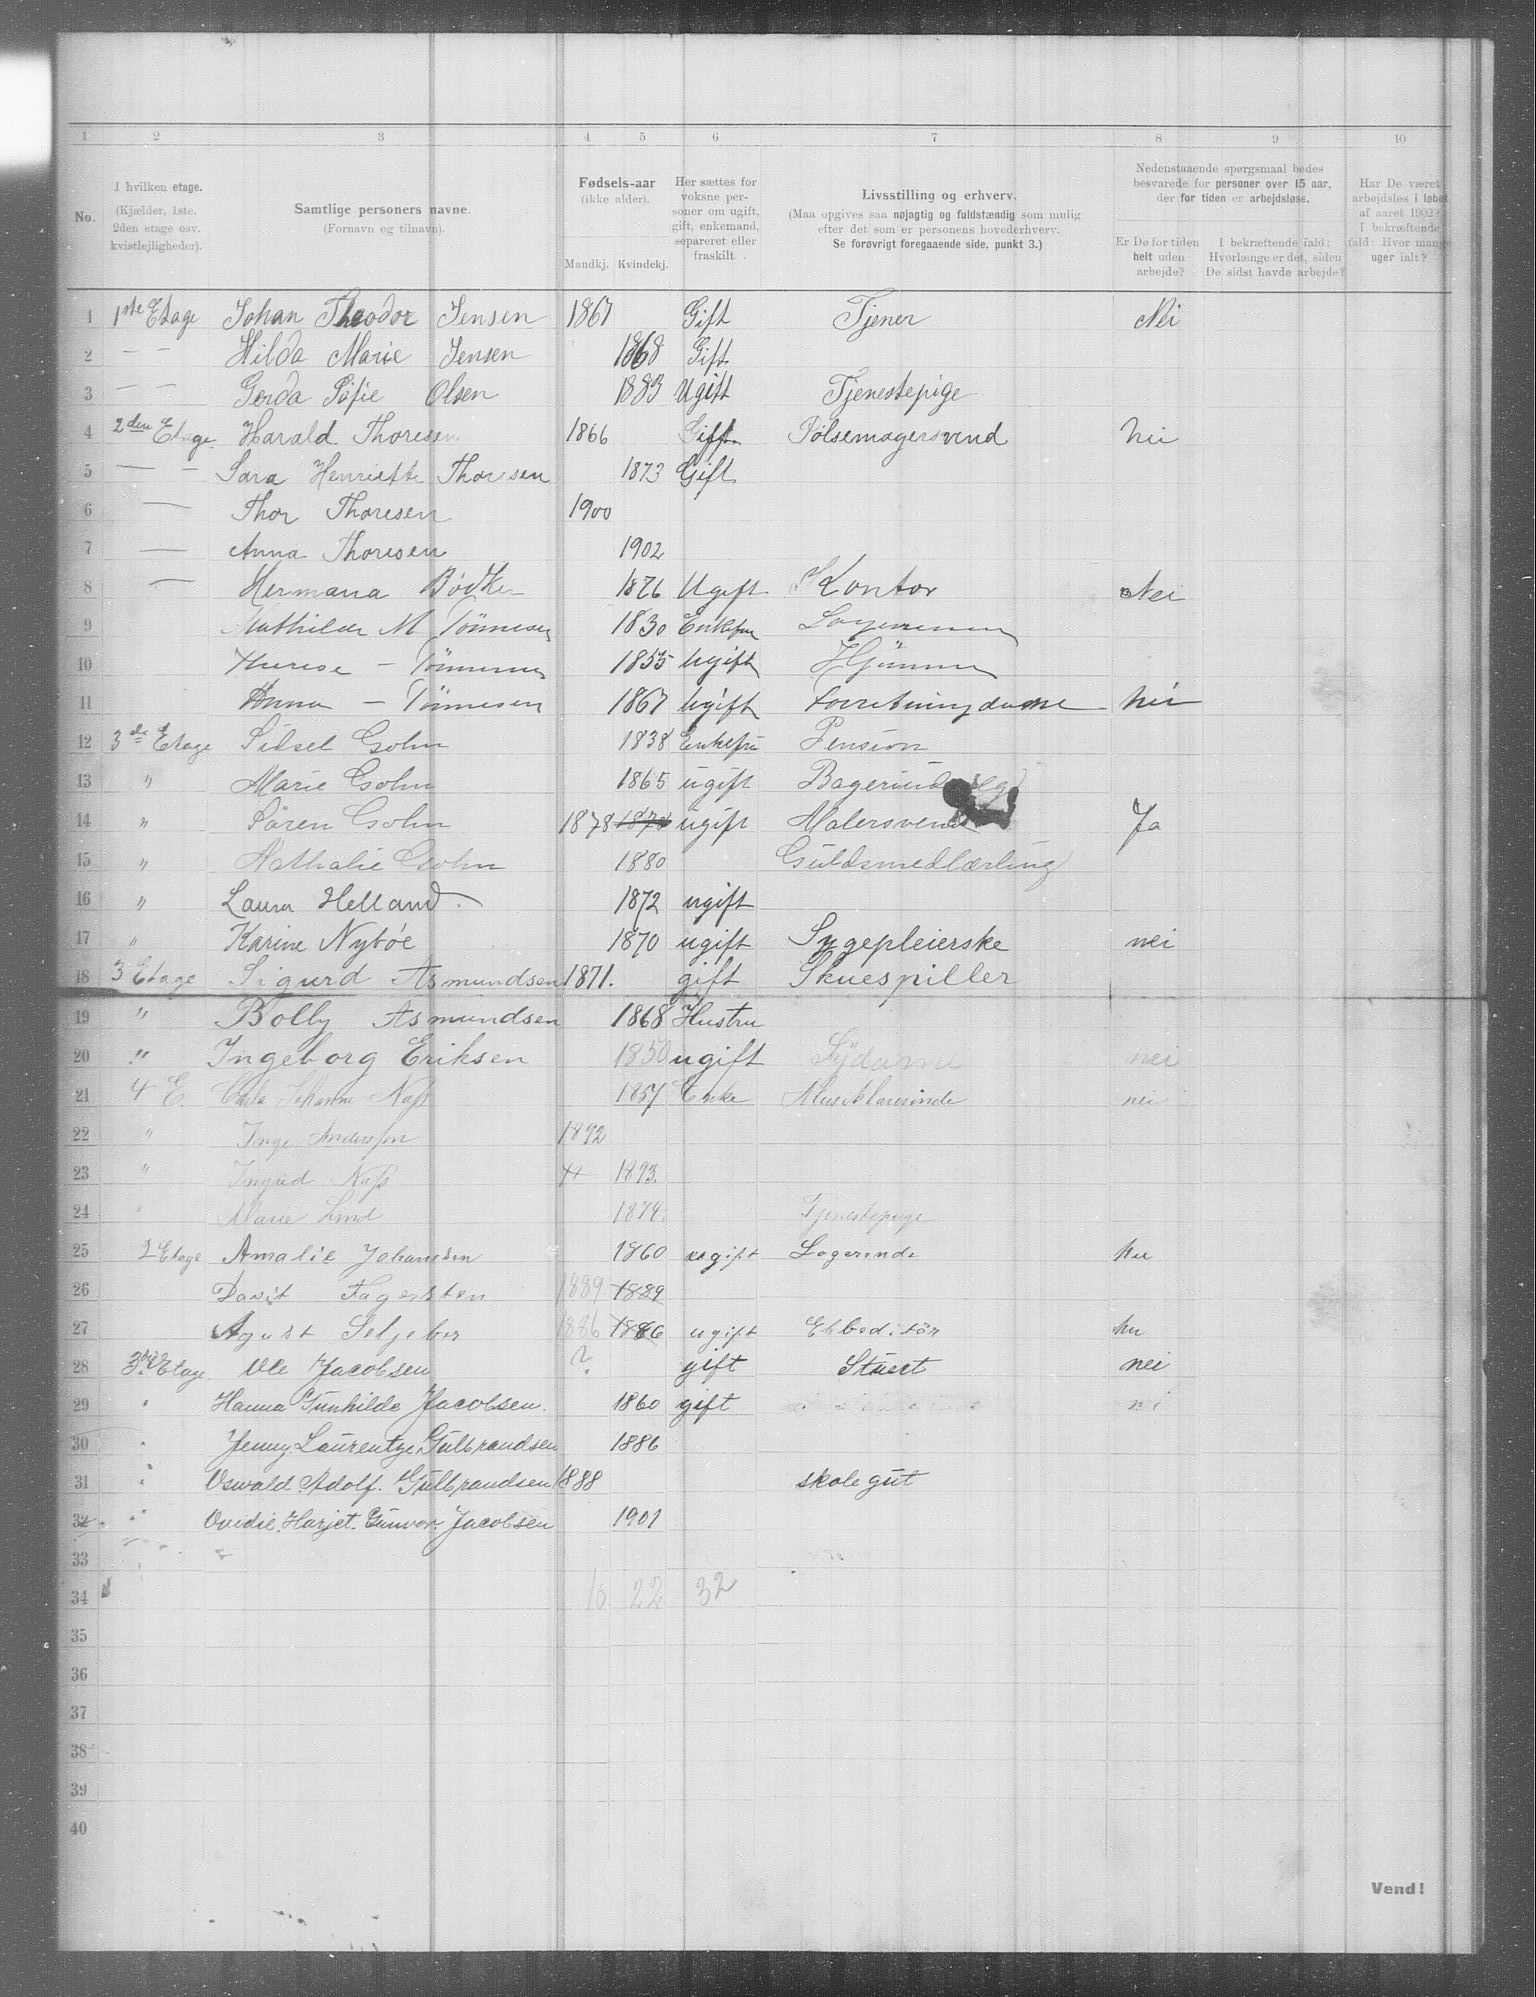 1 2 3 4 5 6 7 8 9 10
No.
I hvilken etage.
(Kjælder, 1ste.
2den etage osv.
kvistlejligheder).
Samtlige personers navne.
(Fornavn og tilnavn).
Fødsels-aar
(ikke alder).
Mandkj. Kvindekj.
Her sættes for
voksne per-
soner om ugift,
gift, enkemand,
separeret eller
fraskilt.
Livsstilling og erhverv.
(Maa opgives saa nøjagtig og fuldstændig som mulig
efter det som er personens hovederhverv.
Se forøvrigt foregaaende side, punkt 3.)
Nedenstaaende spørgsmaal bedes
besvarede for personer over 15 aar,
der for tiden er arbejdsløse.
Er De for tiden
helt uden
arbejde?
I bekræftende fald:
Hvorlænge er det, siden
De sidst havde arbejde?
Har De været
arbejdsløs i løbet
af aaret 1902?
I bekræftende
fald: Hvor mange
uger ialt?
1 1ste Etage Johan Theodor Jensen 1867 Gift Tjener Nei
2 — — Hilda Marie Jensen 1868 Gift
3 — — Gerda Sofie Olsen 1883 Ugift Tjenestepige
4 2den Etage Harald Thoresen 1866 Gift Pølsemagersvend Nei
5 — — Sara Henriette Thoresen 1873 Gift
6 — Thor Thoresen 1900
7 — Anna Thoresen 1902
8 — Hermana Bödker 1876 Ugift Kontor Nei
9 Mathilde M Tönnesen 1830 Enkefru
10 Therese — Tönnesen 1855 Ugift
11 Anna — Tönnesen 1867 Ugift Forretningdame Nei
12 3de Etage Sidsel Gsohn 1838 Enkefru Pension
13 " Marie Gsohn 1865 ugift
14 " Sören Gsohn 1878 1878 ugift Malersvend Ja
15 " Nathalie Gsohn 1880 Guldsmedlærling
16 " Laura Helland. 1872 ugift
17 " Karine Nyböe 1870 ugift Sygepleierske nei
18 3 Etage Sigurd Asmundsen 1871. gift Skuespiller
19 " Bolly Asmundsen 1868 Hustru
20 " Ingeborg Eriksen 1850 ugift Sydame nei
21 4 E. Johanne Nass 1857 Enke Musiklærerinde nei
22 " Inge 1892
23 " Ingrid Nass 1893.
24 " Marie Lind 1874. Tjenestepige
25 2 Etage Amalie Johansen 1860 ugift Logerende
26 Davit Fagersten 1889 1889
27 Agust Seljebor 1886 1886 ugift Ekbeditör
28 3die Etage Ole Jacobsen ? gift Stuert nei
29 " Hanna Gunhilde Jacobsen. 1860 gift
30 " Jenny Laurentze Gulbrandsen 1886
31 " Oswald Adolf. Gulbrandsen 1888 skolegut
32 " Ovedie. Harjet. Gunvor. Jacobsen 1901
33
34 10 22 32
35
36
37
38
39
40
Vend!